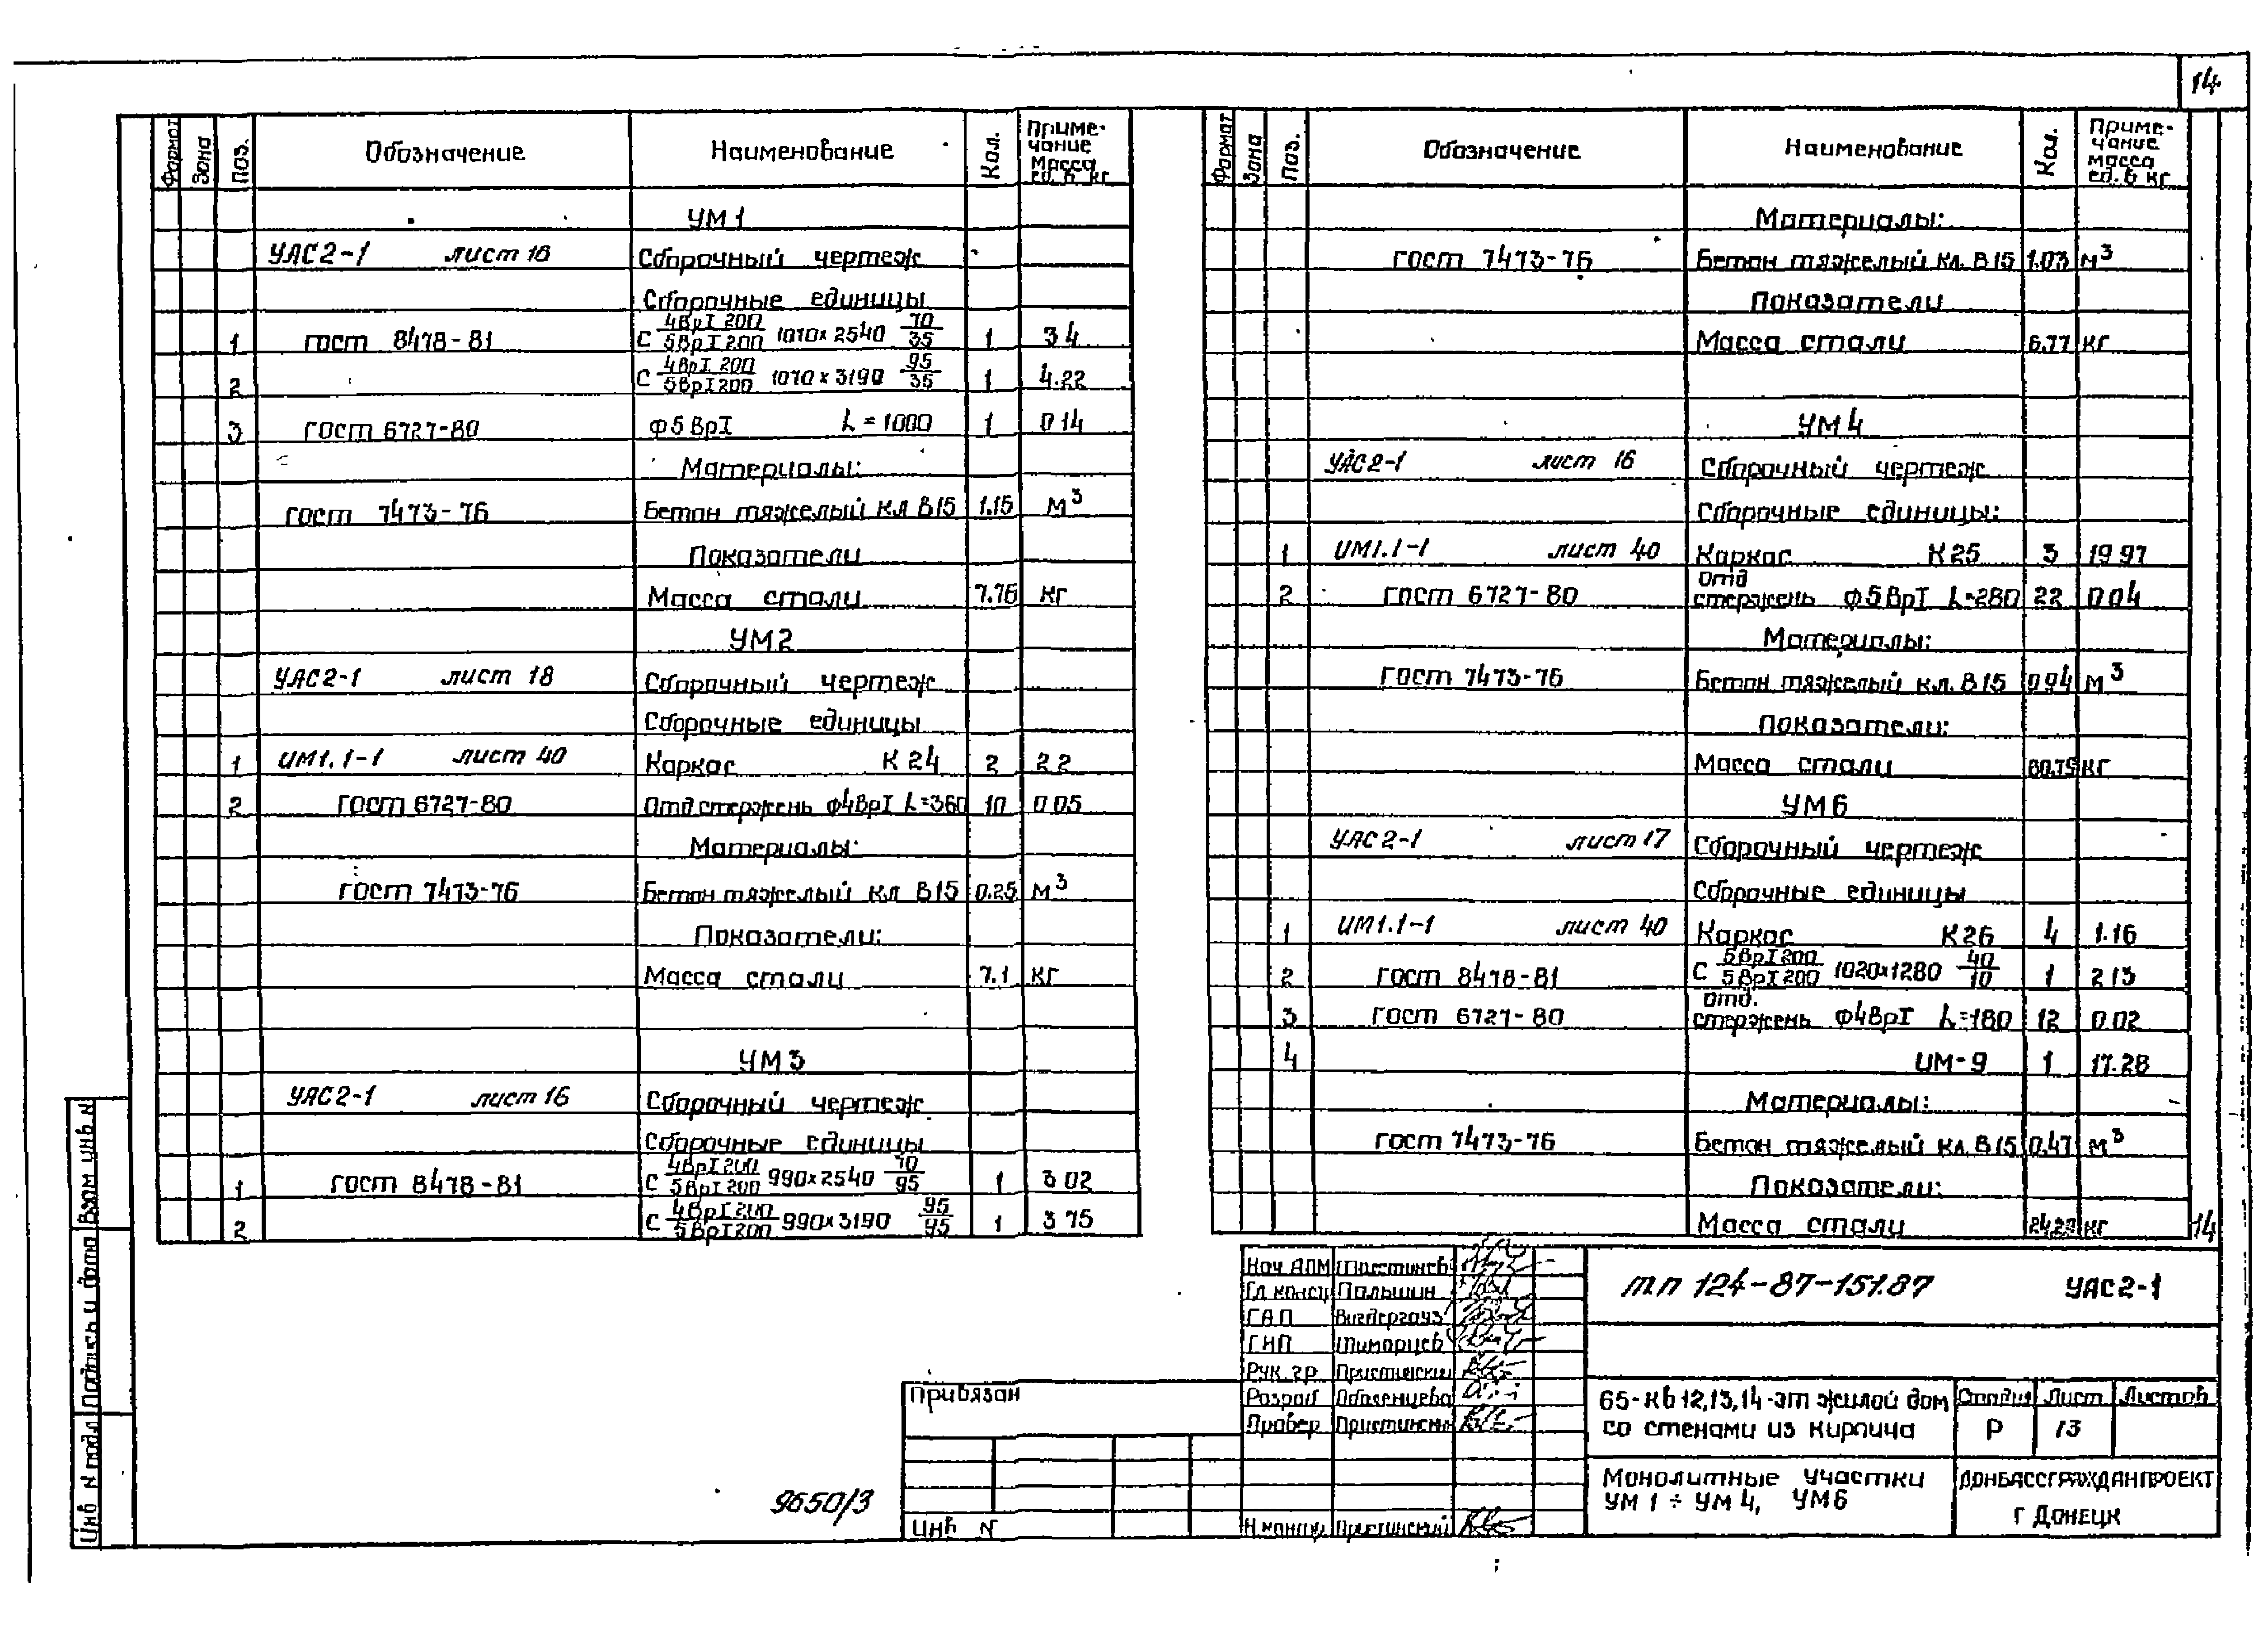 14
Формат Зона Поз. Обозначение Наименование Кол. Приме-
чание
масса
ед. в кг
УМ1
УАС2-1 лист 16 Сборочный чертеж
Сборочные единицы
1 ГОСТ 8478-81 С 4ВрI 200 / 5ВрI 200 1070х2540 70/35 1 3.4
2 С 4ВрI 200 / 5ВрI 200 1070х3190 95/35 1 4.22
3 ГОСТ 6727-80 Ф5ВрI L=1000 1 0.14
Материалы:
ГОСТ 7473-76 Бетон тяжелый кл В15 1.15 м³
Показатели
Масса стали 7.76 кг
УМ2
УАС2-1 лист 18 Сборочный чертеж
Сборочные единицы
1 ИМ1.1-1 лист 40 Каркас К24 2 2.2
2 ГОСТ 6727-80 Отд.стержень Ф4ВрI L=360 10 0.05
Материалы:
ГОСТ 7473-76 Бетон тяжелый кл В15 0.25 м³
Показатели:
Масса стали 7.1 кг
УМ3
УАС2-1 лист 16 Сборочный чертеж
Сборочные единицы
1 ГОСТ 8478-81 С 4ВрI 200 / 5ВрI 200 990х2540 70/95 1 3.02
2 С 4ВрI 200 / 5ВрI 200 990х3190 95/95 1 3.75
Формат Зона Поз. Обозначение Наименование Кол. Приме-
чание
масса
ед. в кг
Материалы:
ГОСТ 7473-76 Бетон тяжелый кл. В15 1.03 м³
Показатели
Масса стали 6.77 кг
УМ4
УАС2-1 лист 16 Сборочный чертеж
Сборочные единицы:
1 ИМ1.1-1 лист 40 Каркас К25 3 19.97
2 ГОСТ 6727-80 Отд стержень Ф5ВрI L=280 22 0.04
Материалы:
ГОСТ 7473-76 Бетон тяжелый кл. В15 0.94 м³
Показатели:
Масса стали 60.79 кг
УМ6
УАС2-1 лист 17 Сборочный чертеж
Сборочные единицы
1 ИМ1.1-1 лист 40 Каркас К26 4 1.16
2 ГОСТ 8478-81 С 5ВрI 200 / 5ВрI 200 1020х1280 40/10 1 2.13
3 ГОСТ 6727-80 Отд. стержень Ф4ВрI L=180 12 0.02
4 ИМ-9 1 17.28
Материалы:
ГОСТ 7473-76 Бетон тяжелый кл. В15 0.47 м³
Показатели:
Масса стали 24.29 кг
14
Взам инв N
Подпись и дата
Инв N подл
Нач АПМ
Гл конст Пальшин
ГАП Выдергоуз
ГИП
Рук гр Пристинский
Разраб
Провер Пристинский
Н.контр Пристинский
т.п 124-87-151.87 УАС2-1
65-кв 12,13,14-эт жилой дом
со стенами из кирпича
Стадия Лист Листов
Р 13
Монолитные участки
УМ1 ÷ УМ4, УМ6
ДОНБАССГРАЖДАНПРОЕКТ
г Донецк
Привязан
Инв N
9650/3